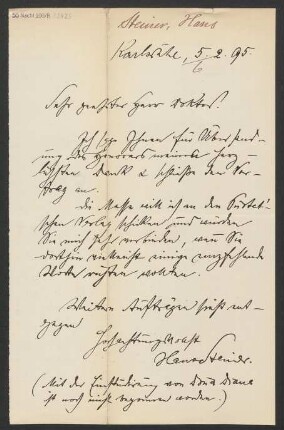 Steiner, Hans
Karlsruhe, 5.2.95.
6
Sehr geehrter Herr Doktor!
Ich sage Ihnen für Übersend-
ung des Honorars meinen herz-
lichsten Dank & schließe den Ver-
trag an.
Die Messe will ich an den Pustet'-
schen Verlag schicken und würden
Sie mich sehr verbinden, wenn Sie
dorthin vielleicht einige empfehlende
Worte richten wollten.
Weitern Aufträgen sieht ent-
gegen
Hochachtungsvollst
Hans Steiner.
(Mit der Einstudierung von Dona Diana
ist noch nicht begonnen worden.)